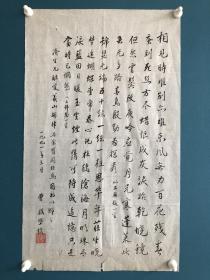 相見時難別亦難東風無力百花殘春
蠶到死絲方盡蠟炬成灰淚始乾曉鏡
但愁雲鬢改夜吟應覺月光寒蓬萊此
去無多路青鳥殷勤為探看
錦瑟無端五十絃一絃一柱思華年莊生曉
夢迷蝴蝶望帝春心託杜鵑滄海月明珠有
淚藍田日暖玉生煙此情可待成追憶只是
當時已惘然
濟生兄雅愛義山詩
一九九一年三月 曹